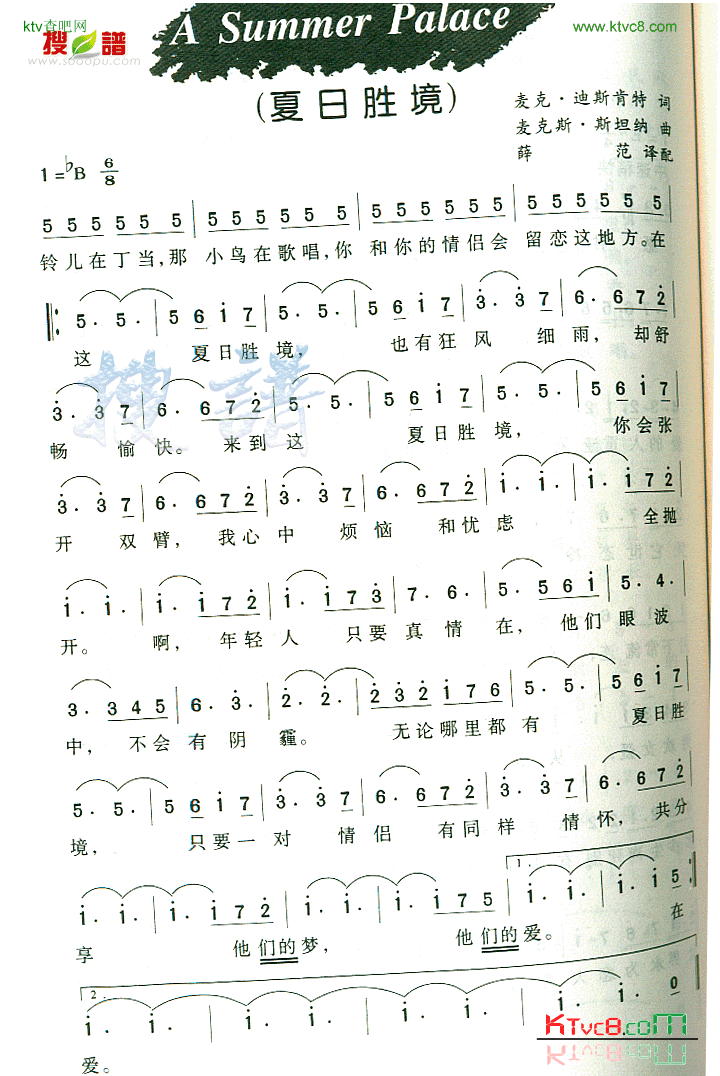 ktv查吧网
搜譜
www.sooopu.com
A Summer Palace
www.ktvc8.com
(夏日胜境)
麦克·迪斯肯特 词
麦克斯·斯坦纳 曲
薛 范 译配
1=♭B 6/8
5 5 5 5 5 5 | 5 5 5 5 5 5 | 5 5 5 5 5 5 | 5 5 5 5 5 5
铃儿在丁当,那 小鸟在歌唱,你 和你的情侣会 留恋这地方。在
‖: 5. 5. | 5 6 i 7 | 5. 5. | 5 6 i 7 | 3. 3 7 | 6. 6 7 2
这 夏日胜境, 也有狂风 细雨, 却舒
搜譜
3. 3 7 | 6. 6 7 2 | 5. 5. | 5 6 i 7 | 5. 5. | 5 6 i 7
畅 愉快。来到这 夏日胜境, 你会张
3. 3 7 | 6. 6 7 2 | 3. 3 7 | 6. 6 7 2 | i. i. | i. i 7 2
开 双臂, 我心中 烦恼 和忧虑 全抛
i. i. | i. i 7 2 | i. i 7 3 | 7. 6. | 5. 5 6 i | 5. 4.
开。 啊, 年轻人 只要真情在, 他们眼波
3. 3 4 5 | 6. 3. | 2. 2. | 2 3 2 i 7 6 | 5. 5. | 5 6 i 7
中, 不会有阴霾。 无论哪里都有 夏日胜
5. 5. | 5 6 i 7 | 3. 3 7 | 6. 6 7 2 | 3. 3 7 | 6. 6 7 2
境, 只要一对 情侣 有同样 情怀, 共分
1.
i. i. | i. i 7 2 | i. i. | i. i 7 5 | i. i. | i. i 5 :‖
享 他们的梦, 他们的爱。 在
2.
i. i. | i. i. | i. i. | i. i 0
KTvc8.com
爱。